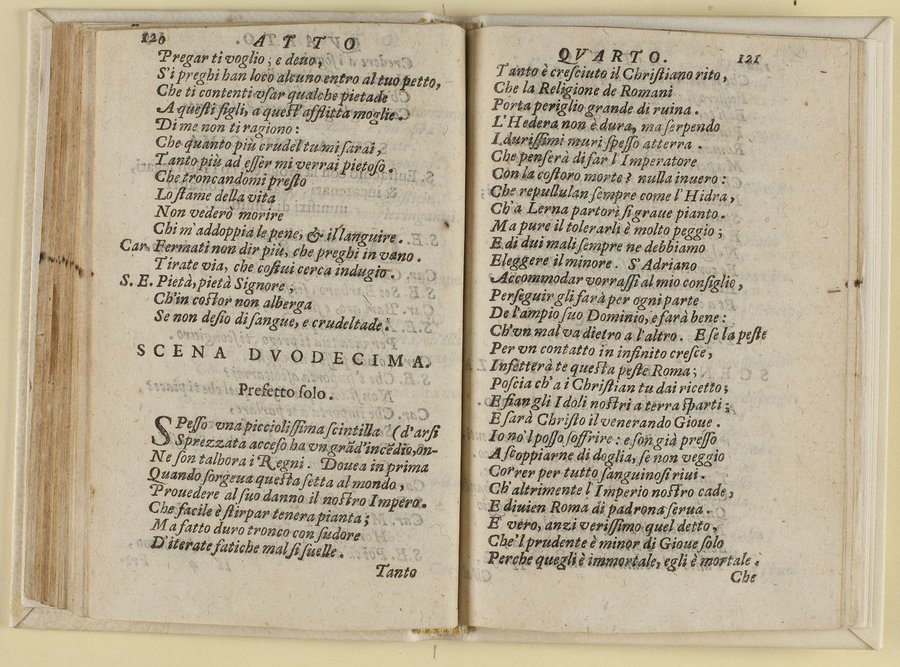 120 ATTO
Pregar ti voglio, e deuo,
S'i preghi han loco alcuno entro al tuo petto,
Che ti contenti vſar qualche pietade
A queſti figli, a queſt' afflitta moglie.
Di me non ti ragiono:
Che quanto più crudel tu mi ſarai,
Tanto più ad eſſer mi verrai pietoſo.
Che troncandomi preſto
Lo ſtame della vita
Non vederò morire
Chi m'addoppia le pene, & il languire.
Car. Fermati non dir più, che preghi in vano.
Tirate via, che coſtui cerca indugio.
S. E. Pietà, pietà Signore,
Ch'in coſtor non alberga
Se non deſio di ſangue, e crudeltade.
SCENA DVODECIMA.
Prefetto ſolo.
SPeſſo vna piccioliſſima ſcintilla (d'arſi
Sprezzata acceſo ha vn grād'incēdio, on-
Ne ſon talhora i Regni. Douea in prima
Quando ſorgeua queſta ſetta al mondo,
Prouedere al ſuo danno il noſtro Impero.
Che facile è ſtirpar tenera pianta;
Ma fatto duro tronco con ſudore
D'iterate fatiche mal ſi ſuelle.
Tanto
QVARTO. 121
Tanto è creſciuto il Chriſtiano rito,
Che la Religione de Romani
Porta periglio grande di ruina.
L'Hedera non è dura, ma ſerpendo
I duriſſimi muri ſpeſſo atterra.
Che penſerà di far l'Imperatore
Con la coſtoro morte? nulla inuero:
Che repullulan ſempre come l'Hidra,
Ch'a Lerna partorì ſi graue pianto.
Ma pure il tolerarli è molto peggio;
E di dui mali ſempre ne debbiamo
Eleggere il minore. S'Adriano
Accommodar vorraſſi al mio conſiglio,
Perſeguir gli farà per ogni parte
De l'ampio ſuo Dominio, e farà bene:
Ch'vn mal va dietro a l'altro. E ſe la peſte
Per vn contatto in infinito creſce,
Inſetterà te queſta peſte Roma;
Poſcia ch'a i Chriſtian tu dai ricetto;
E fian gli Idoli noſtri a terra ſparti;
E ſarà Chriſto il venerando Gioue.
Io no'l poſſo ſoffrire: e ſon già preſſo
A ſcoppiarne di doglia, ſe non veggio
Correr per tutto ſanguinoſi riui.
Ch'altrimente l'Imperio noſtro cade,
E diuien Roma di padrona ſerua.
E vero, anzi veriſſimo quel detto,
Che'l prudente è minor di Gioue ſolo
Perche quegli è immortale, egli è mortale.
Che